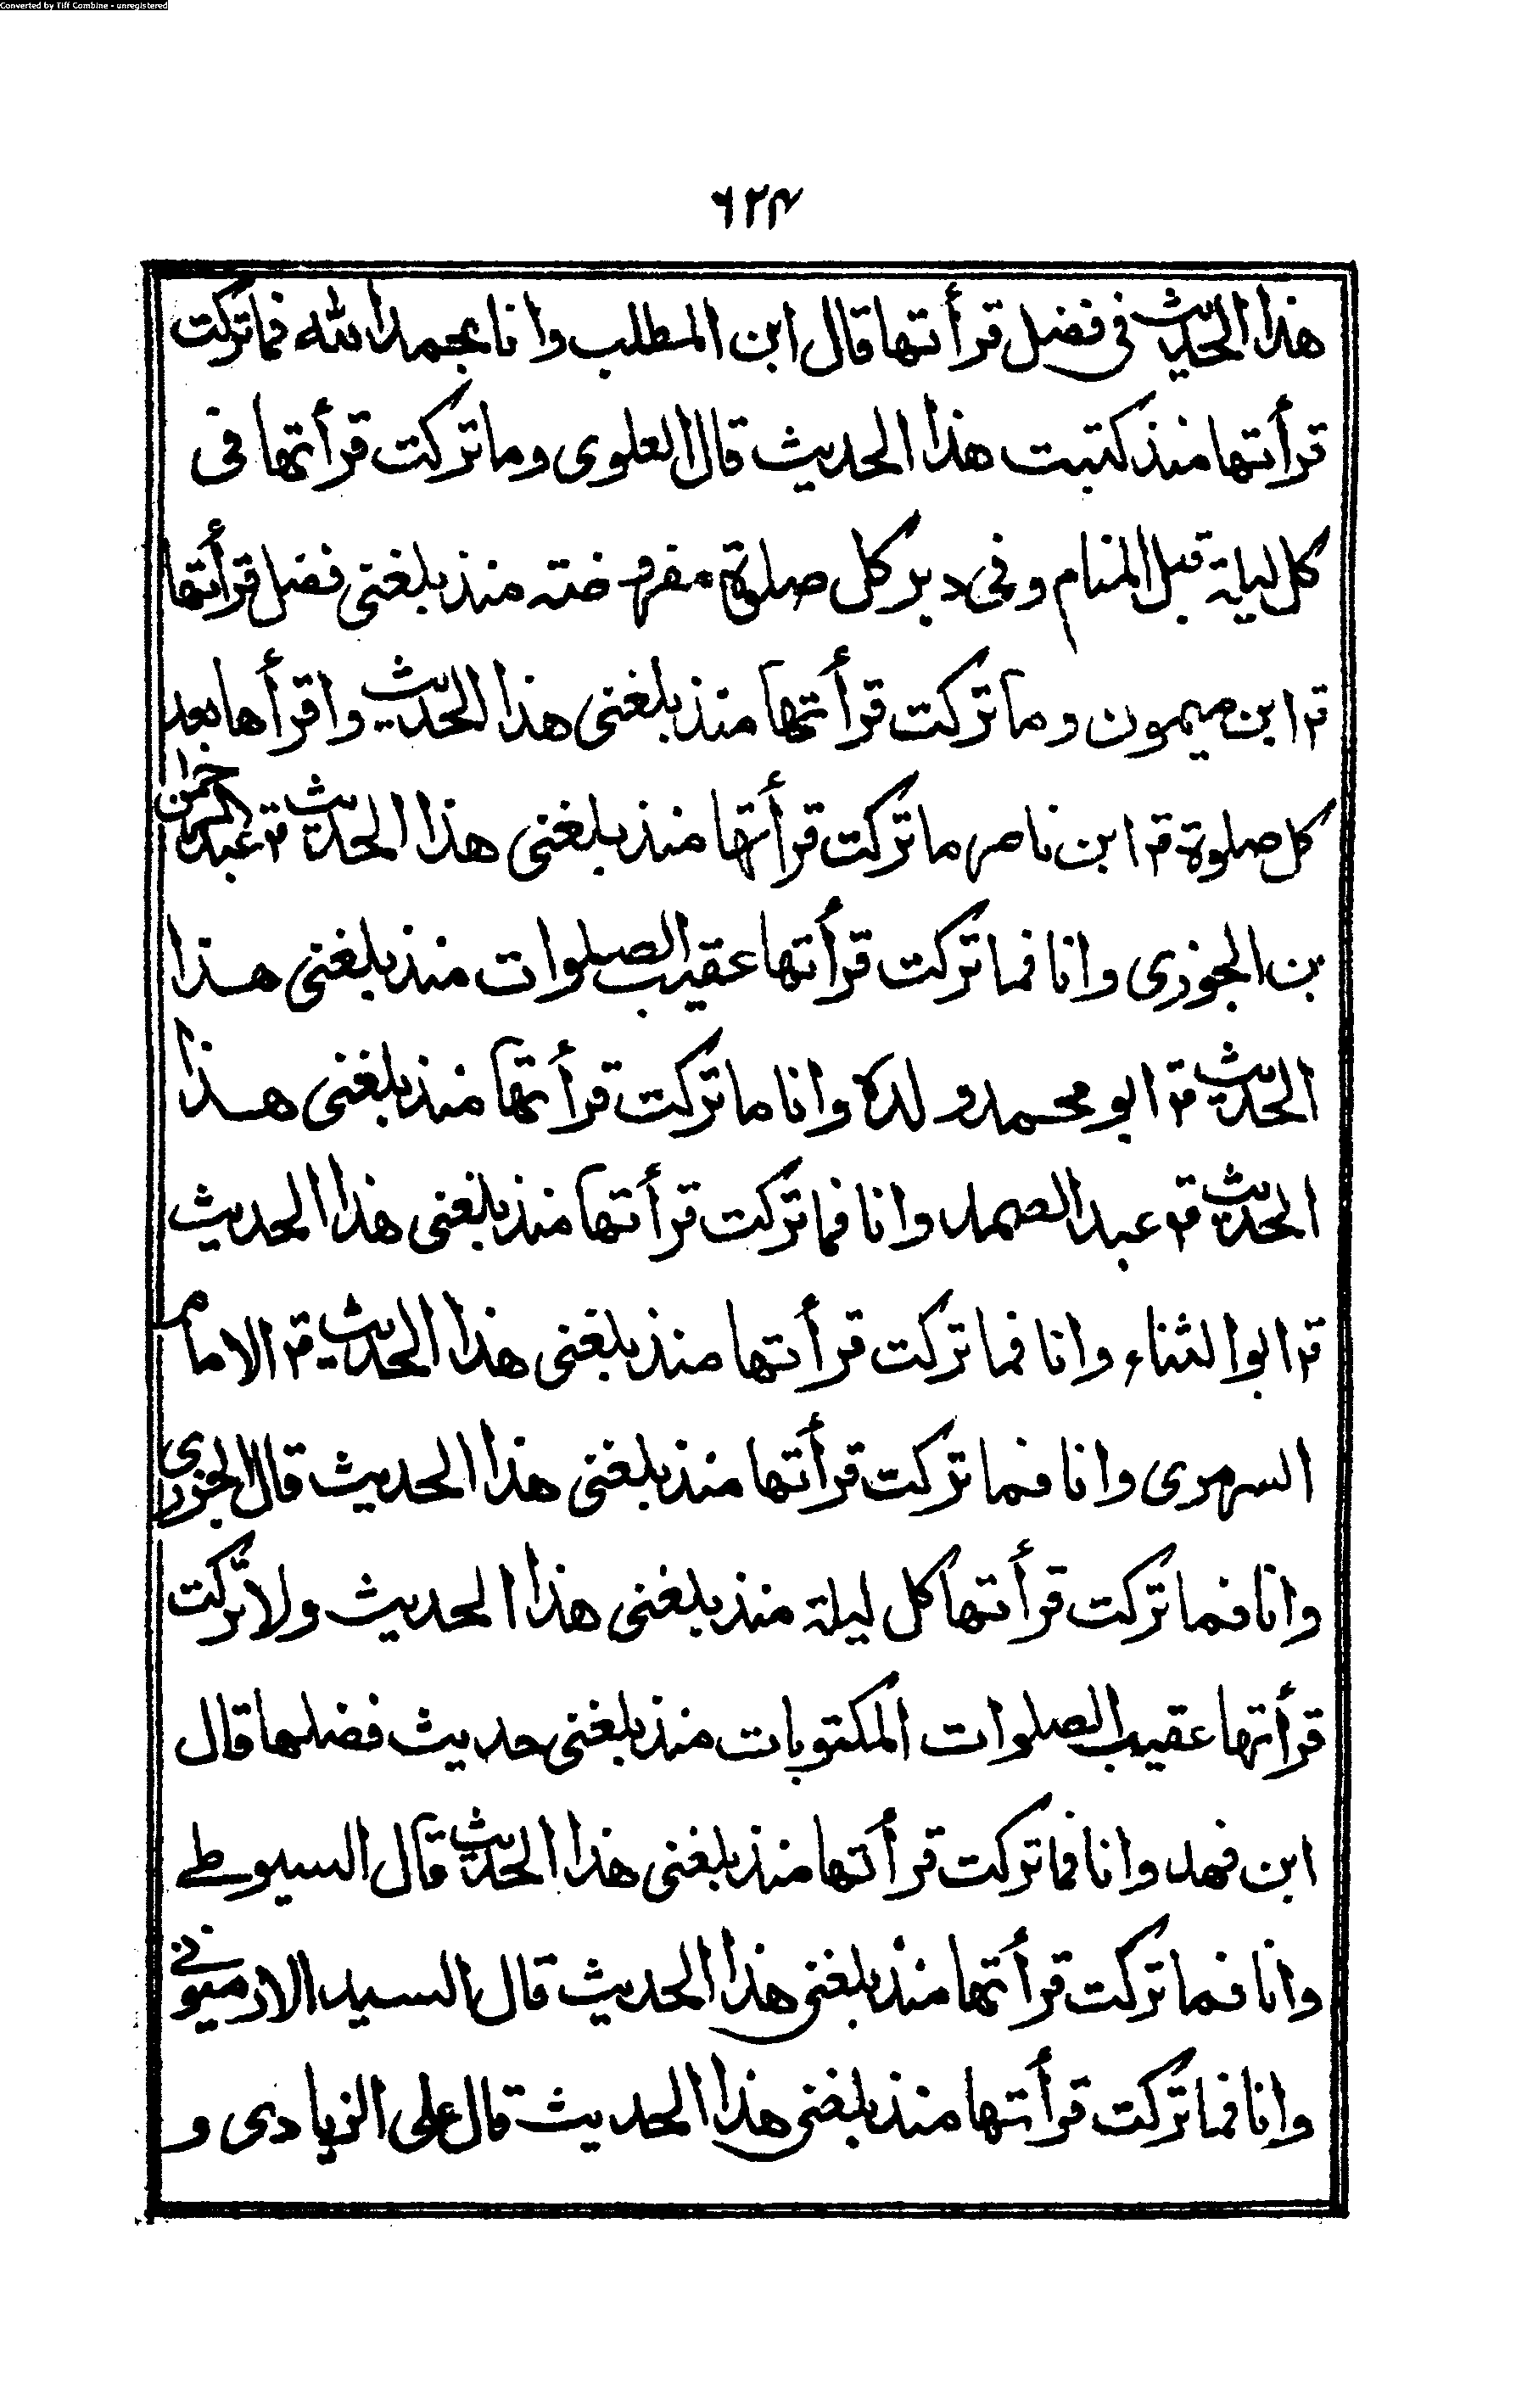 Converted by Tiff Combine - unregistered
٦٢٤
هذا الحديث فى فضل قرأتها قال ابن المطلب وانا بحمد الله فما تركت
قرأتها منذ كتبت هذا الحديث قال العلوى وما تركت قرأتها فى
كل ليلة قبل المنام وفى دبر كل صلوة مفروضته منذ بلغنى فضل قرأتها
قم ابن ميمون وما تركت قرأتها منذ بلغنى هذا الحديث واقرأها بعد
كل صلوة قم ابن ناصر ما تركت قرأتها منذ بلغنى هذا الحديث قم عبد الرحمن
بن الجوزى وانا فما تركت قرأتها عقيب الصلوات منذ بلغنى هذا
الحديث قم ابو محمد ولده وانا ما تركت قرأتها منذ بلغنى هذا
الحديث قم عبد الصمد وانا فما تركت قرأتها منذ بلغنى هذا الحديث
قم ابو الثناء وانا فما تركت قرأتها منذ بلغنى هذا الحديث قم الامام
السرمرى وانا فما تركت قرأتها منذ بلغنى هذا الحديث قال الجزرى
وانا فما تركت قرأتها كل ليلة منذ بلغنى هذا الحديث ولا تركت
قرأتها عقيب الصلوات المكتوبات منذ بلغنى حديث فضلها قال
ابن فهد وانا فما تركت قرأتها منذ بلغنى هذا الحديث قال السيوطے
وانا فما تركت قرأتها منذ بلغنى هذا الحديث قال السيد الارميونے
وانا فما تركت قرأتها منذ بلغنى هذا الحديث قال على الزيادى و